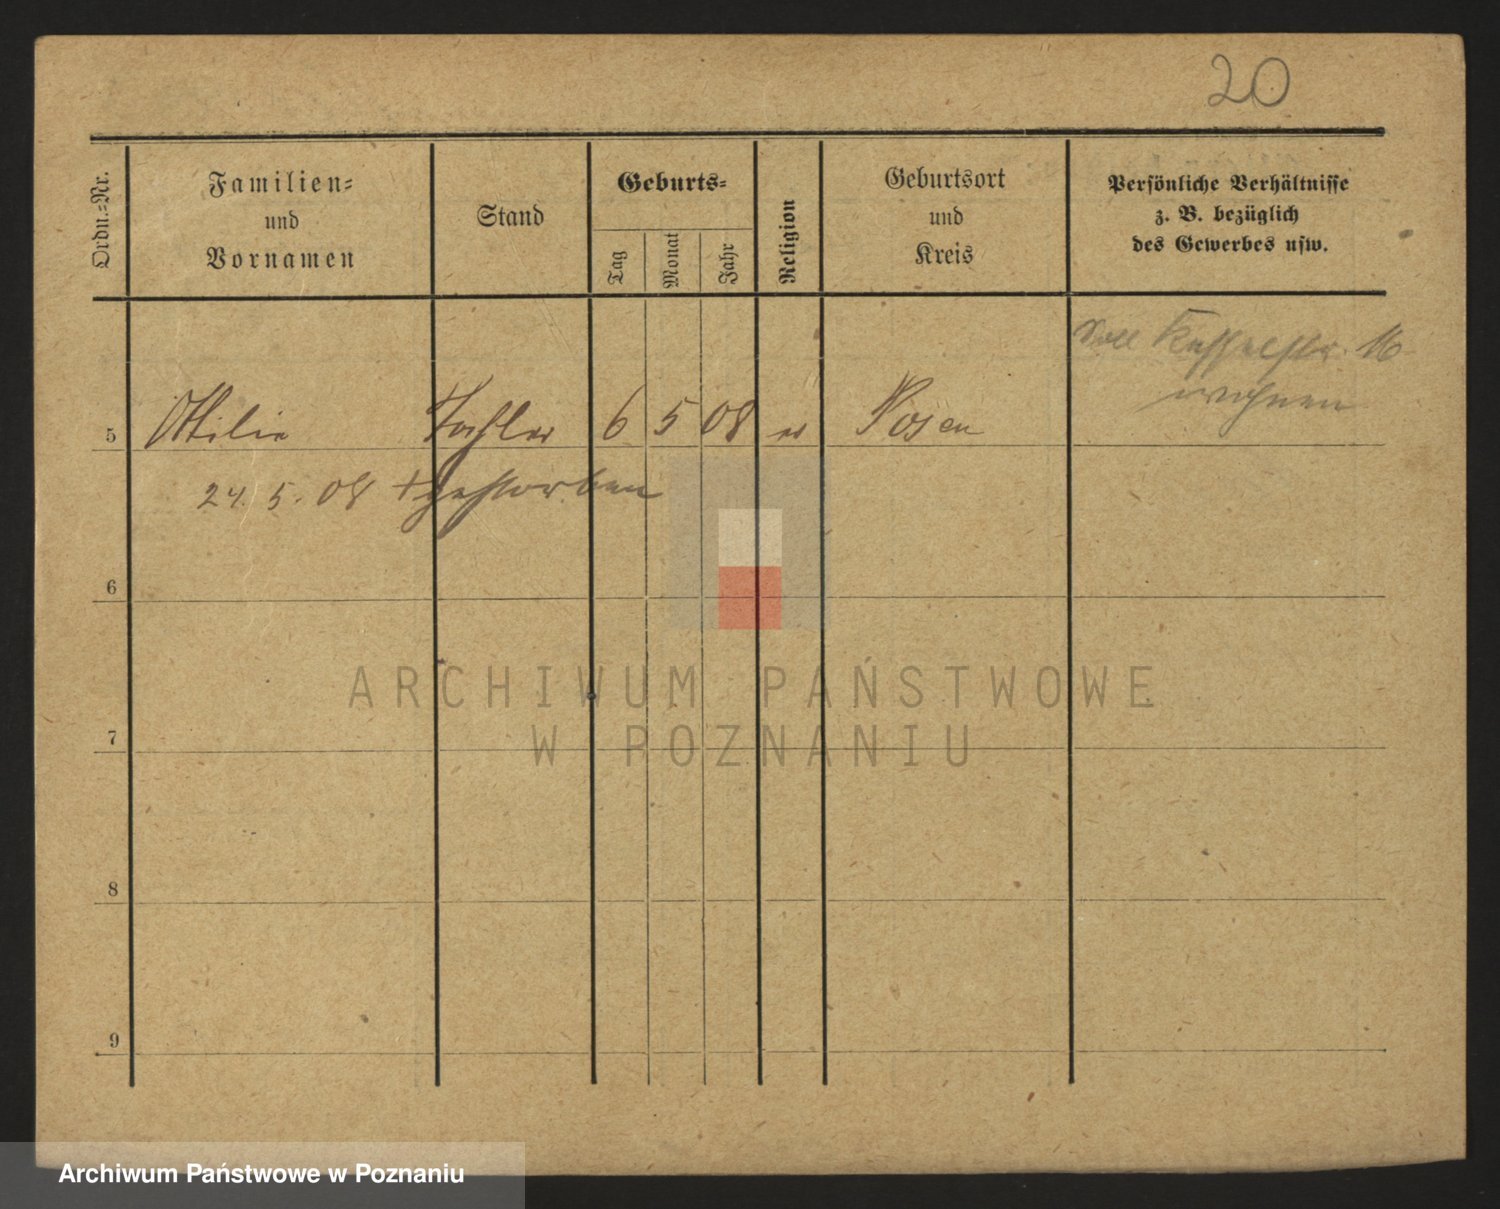 20
Ordn.-Nr.
Familien-
und
Vornamen
Stand
Geburts-
Tag
Monat
Jahr
Religion
Geburtsort
und
Kreis
Persönliche Verhältnisse
z. B. bezüglich
des Gewerbes usw.
soll 16
wohnen
5 Ottilie Tochter 6 5 08 Posen
24. 5. 08 + gestorben
6
7
8
9
ARCHIWUM PAŃSTWOWE
W POZNANIU
Archiwum Państwowe w Poznaniu